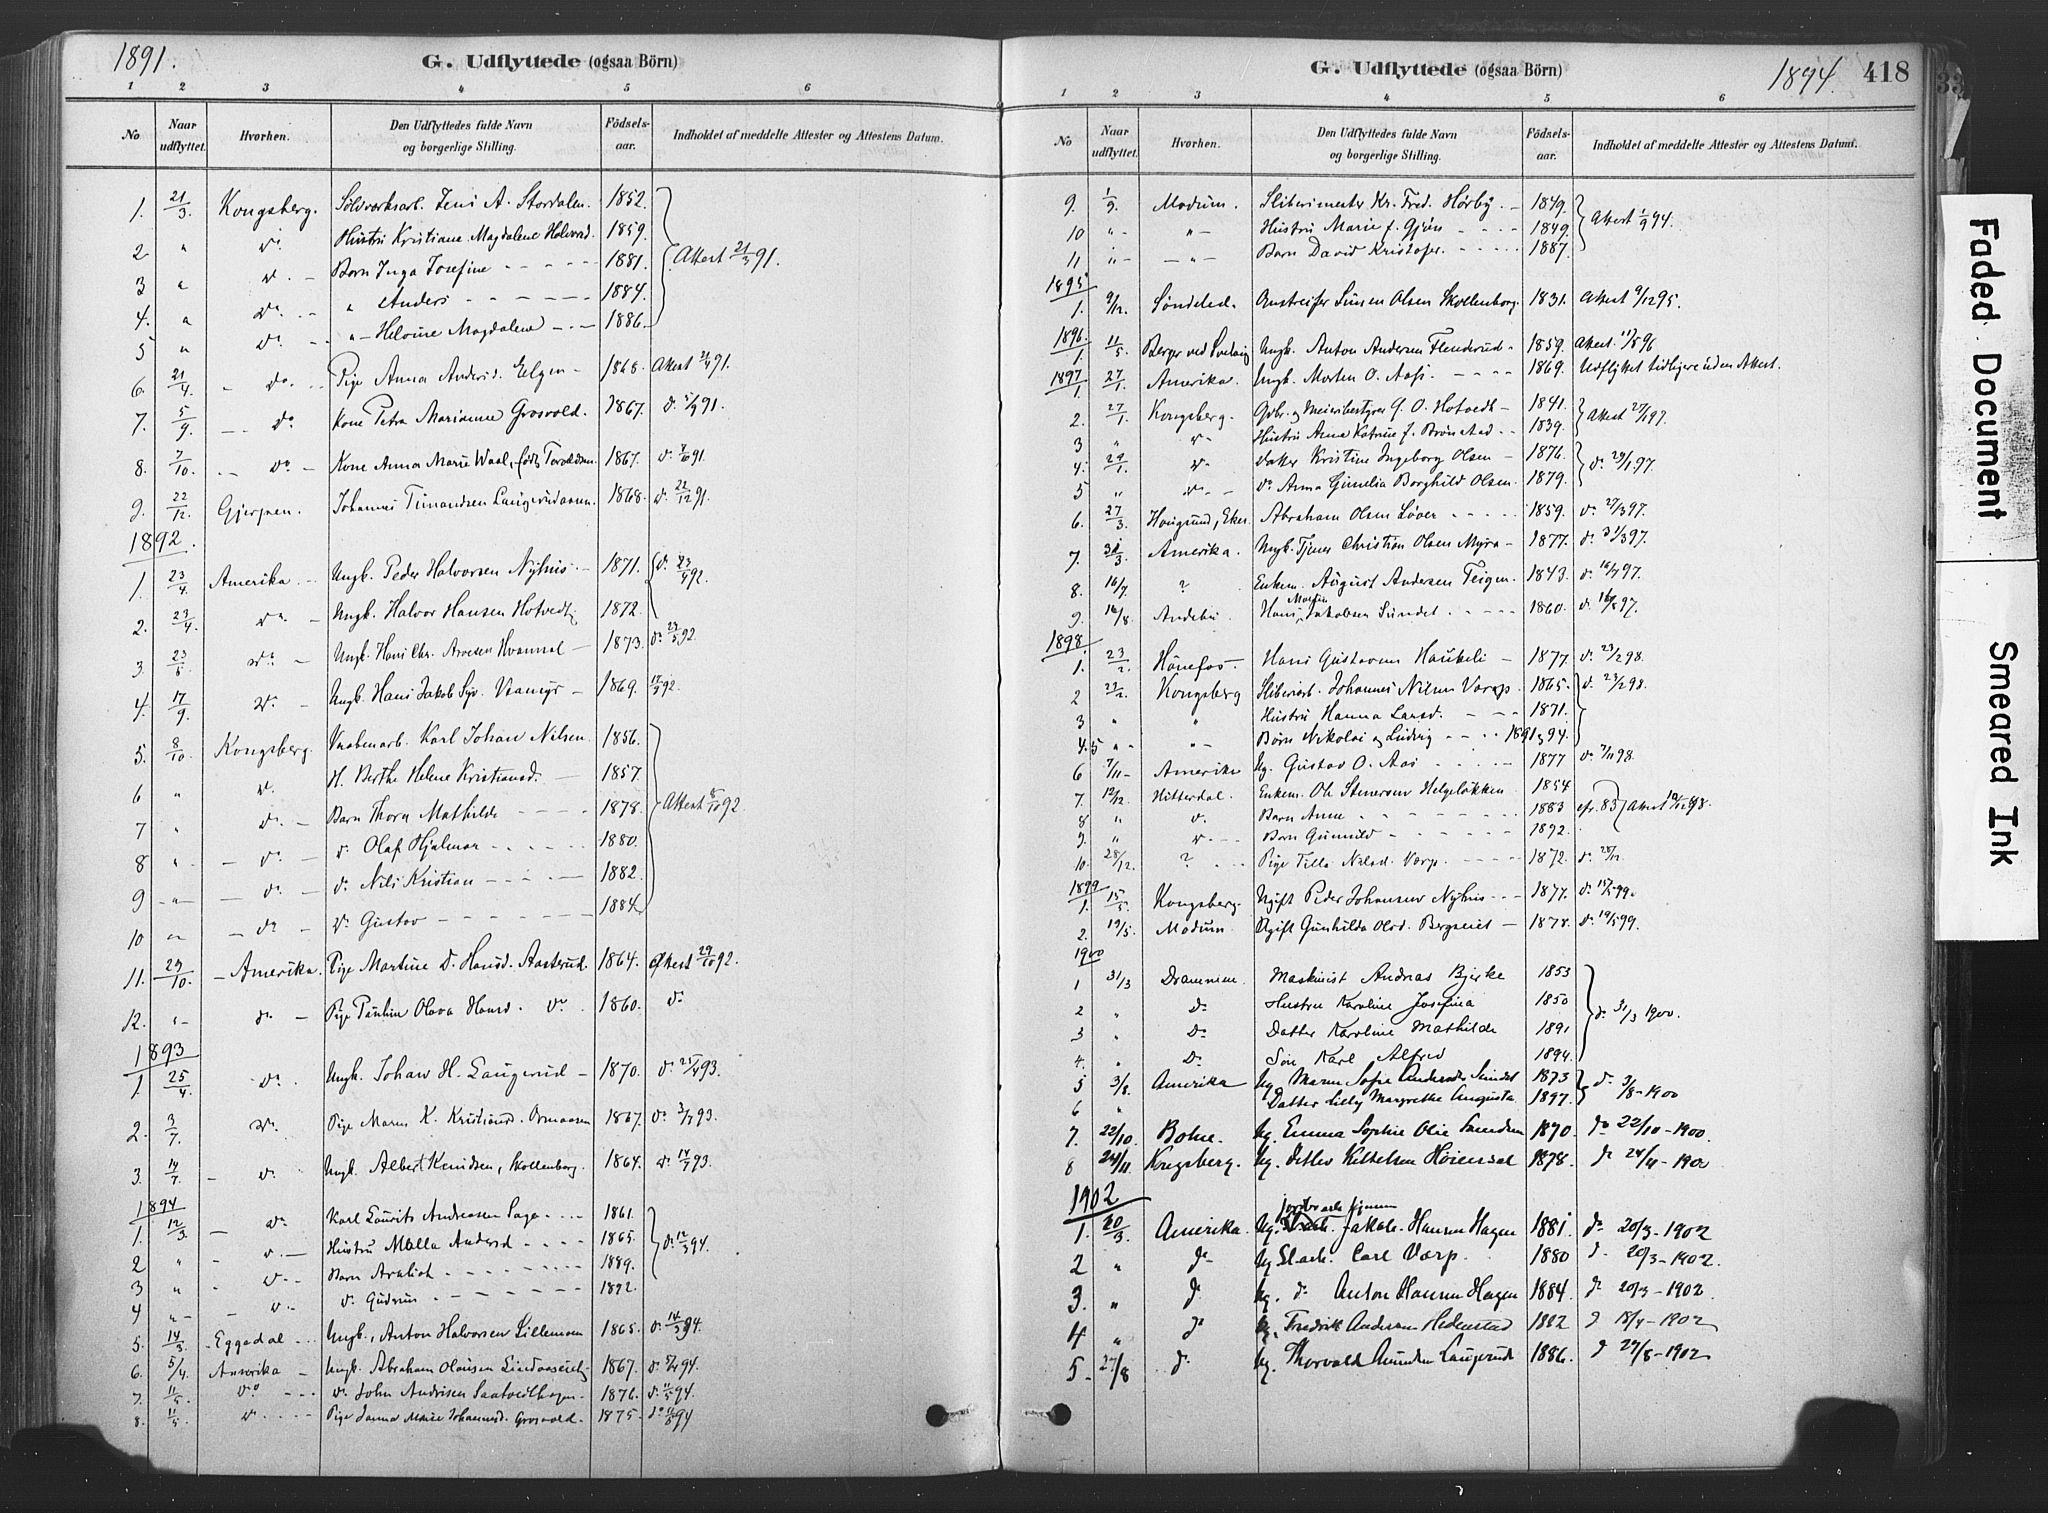 1891.
G. Udflyttede (ogsaa Börn)
1 2 3 4 5 6
No
Naar udflyttet.
Hvorhen.
Den Udflyttedes fulde Navn og borgerlige Stilling.
Födsels-aar.
Indholdet af meddelte Attester og Attestens Datum.
1. 21/3. Kongsberg. Sölvverksarb. Jens A. Stordalen. 1852.
2 " do Hustru Kristiane Magdalene Halvorsd. 1859.
3 " do Barn Inga Josefine 1881. Attest 21/3 91.
4. " do " Anders 1884.
5 " do " Helvine Magdalene 1886.
6. 21/4. do Pige Anna Andersd. Elgen 1868. Attest 21/4 91.
7. 5/9. do Kone Petra Marianne Grosvold. 1867. do 5/9 91.
8. 7/10. do Kone Anna Marie Waal, född Toraldsen 1867. do 7/10 91.
9. 22/12. Gjerpen. Johannes Timandsen Laugerudaasen 1868. do 22/12 91.
1892.
1. 23/4. Amerika Ungk. Peder Halvorsen Nyhus. 1871. do 23/4 92.
2. 23/4. do Ungk. Halvor Hansen Hotvedt 1872.
3 23/5 do Ungk. Hans Chr. Arvesen Hvamsal 1873. do 23/5 92
4. 17/9. do Ungk. Hans Jakob Syv. Vramyr 1869. 17/9 92.
5. 8/10 Kongsberg. Vaabenarb. Karl Johan Nilsen. 1856.
6 " do H. Berthe Helene Kristiansd. 1857.
7 " do Barn Thora Mathilde 1878. Attest 8/10 92.
8 " do do Olaf Hjalmar 1880.
9 " do do Nils Kristian 1882.
10 " do do Gustav 1884.
11. 29/10 Amerika. Pige Martine D. Hansd. Aasterud. 1864. Attest 29/10 92.
12. " do Pige Pauline Olava Hansd. do 1860. do
1893
1. 25/4 do Ungk. Johan H. Laugerud 1870. do 25/4 93.
2. 3/7. do Pige Maren K. Kristiansd. Ormaasen 1867. do 3/7 93.
3. 14/7. do Ungk. Albert Knudsen, Skollenborg. 1864. do 14/7 93.
1894
1. 12/3. do Karl Laurits Andreasen Saga 1861.
2 " do Hustru Malla Andersd 1865. do 12/3 94.
3 " do Barn Araliot 1889.
4 " do do Gudrun 1892.
5. 14/3. Eggedal Ungk. Anton Halvorsen Lillemoen 1865. do 14/3 94.
6. 5/4. Amerika Ungk. Abraham Olausen Lindaasseie 1867. do 5/4 94.
7. 11/5 do do John Andersen Saatvedthagen 1876. do 11/5 94.
8. 11/5 do Pige Janna Marie Johannesd. Grosvold 1875. do 11/5 94
G. Udflyttede (ogsaa Börn)
1894. 418
1 2 3 4 5 6
No
Naar udflyttet.
Hvorhen.
Den Udflyttedes fulde Navn og borgerlige Stilling.
Födsels-aar.
Indholdet af meddelte Attester og Attestens Datum.
9. 1/9. Modum. Sliberimester Kr. Fred. Hörby. 1849.
10 " " Hustru Marie f. Gjön 1849. Attest 1/9 94.
11 " " Barn David Kristofer. 1887.
1895
1. 9/12. Söndeled. Omstreifer Simen Olsen Skollenborg. 1831. Attest 9/12 95.
1896
1. 11/5. Berger ved Svelvig Ungk. Anton Andersen Flenderud 1859. Attest. 11/5 96
1897
1. 27/1. Amerika. Ungk. Morten O. Aas. 1869. Udflyttet tidligere uden Attest.
2. 27/1. Kongsberg. Gbr. og Meieribestyrer G. O. Hotvedt 1841. Attest 27/1 97.
3 " do Hustru Anna Katrine f. Brönstad 1839.
4. 29/1. do Datter Kristine Ingeborg Olsen 1876. do 29/1 97.
5 " do do Anna Gunelia Borghild Olsen. 1879.
6. 27/3. Hougsund, Eker. Abraham Olsen Löver 1859. do 27/3 97.
7. 31/3. Amerika. Ungk. Tjener Christian Olsen Myra 1877. do 31/3 97.
8. 16/7. ? Enkem. August Andersen Teigen. 1843. do 16/7 97.
9. 16/8. Andebu Hans Martin Jakobsen Sundet. 1860. do 16/8 97.
1898.
1. 23/2. Hönefos. Hans Gustavsen Haukeli 1877. do 23/2 98.
2 23/2. Kongsberg Sliberiarb. Johannes Nilsen Varp. 1865. do 23/2 98.
3 " " Hustru Hanna Larsd. 1871.
4. 5 " " Börn Nikolai og Ludvig 1891 og 94.
6 7/11 Amerika Ug. Gustav O. Aas 1877 do 7/11 98.
7. 12/12 Hitterdal. Enkem. Ole Stenersen Helgelökken 1854
8 " do Barn Anne 1883 cfr. 83 Attest 12/12 98.
9 " do Barn Gunnild 1892.
10. 28/12. ? Pige Tilla Nilsd. Varp. 1872. do 28/12.
1899
1. 15/5. Kongsberg. Ugift Peder Johansen Nyhus 1877. do 15/5 99.
2. 19/5. Modum. Ugift Gunhilda Olsd. Bergseiet 1878. do 19/5 99.
1900
1 31/3 Drammen. Maskinist Andreas Bjerke 1853
2 " do Hustru Karoline Josefina 1850
3 " Do Datter Karoline Mathilde 1891 do 31/3 1900.
4. " Do Sön Karl Alfred 1894.
5 3/8. Amerika Ug. Maren Sofie Andersdt. Sundet 1873
6 " Datter Lilly Margrethe Augusta 1897. do 3/8-1900
7. 22/10. Bohne. Ug. Emma Sophie Olie Sandsen 1870. do 22/10-1900.
8 24/11. Kongsberg. Ug. Detlev Kittelsen Höiensal 1878. do 24/11-1900
1902
1. 20/3. Amerika. Ug. Jakob Hansen Hagen 1881. do 20/3-1902
2 " do Ug. Slaeb. Carl Varp. 1880 do 20/3-1902.
3. " do Ug. do Anton Hansen Hagen 1884. do 20/3-1902
4 " do Ug. Fredrik Andersen Hedenstad 1882 do 18/4-1902
5 27/8 do Ug. Thorvald Amundsen Laugerud 1886. do 27/8-1902
Faded Document
Smeared Ink